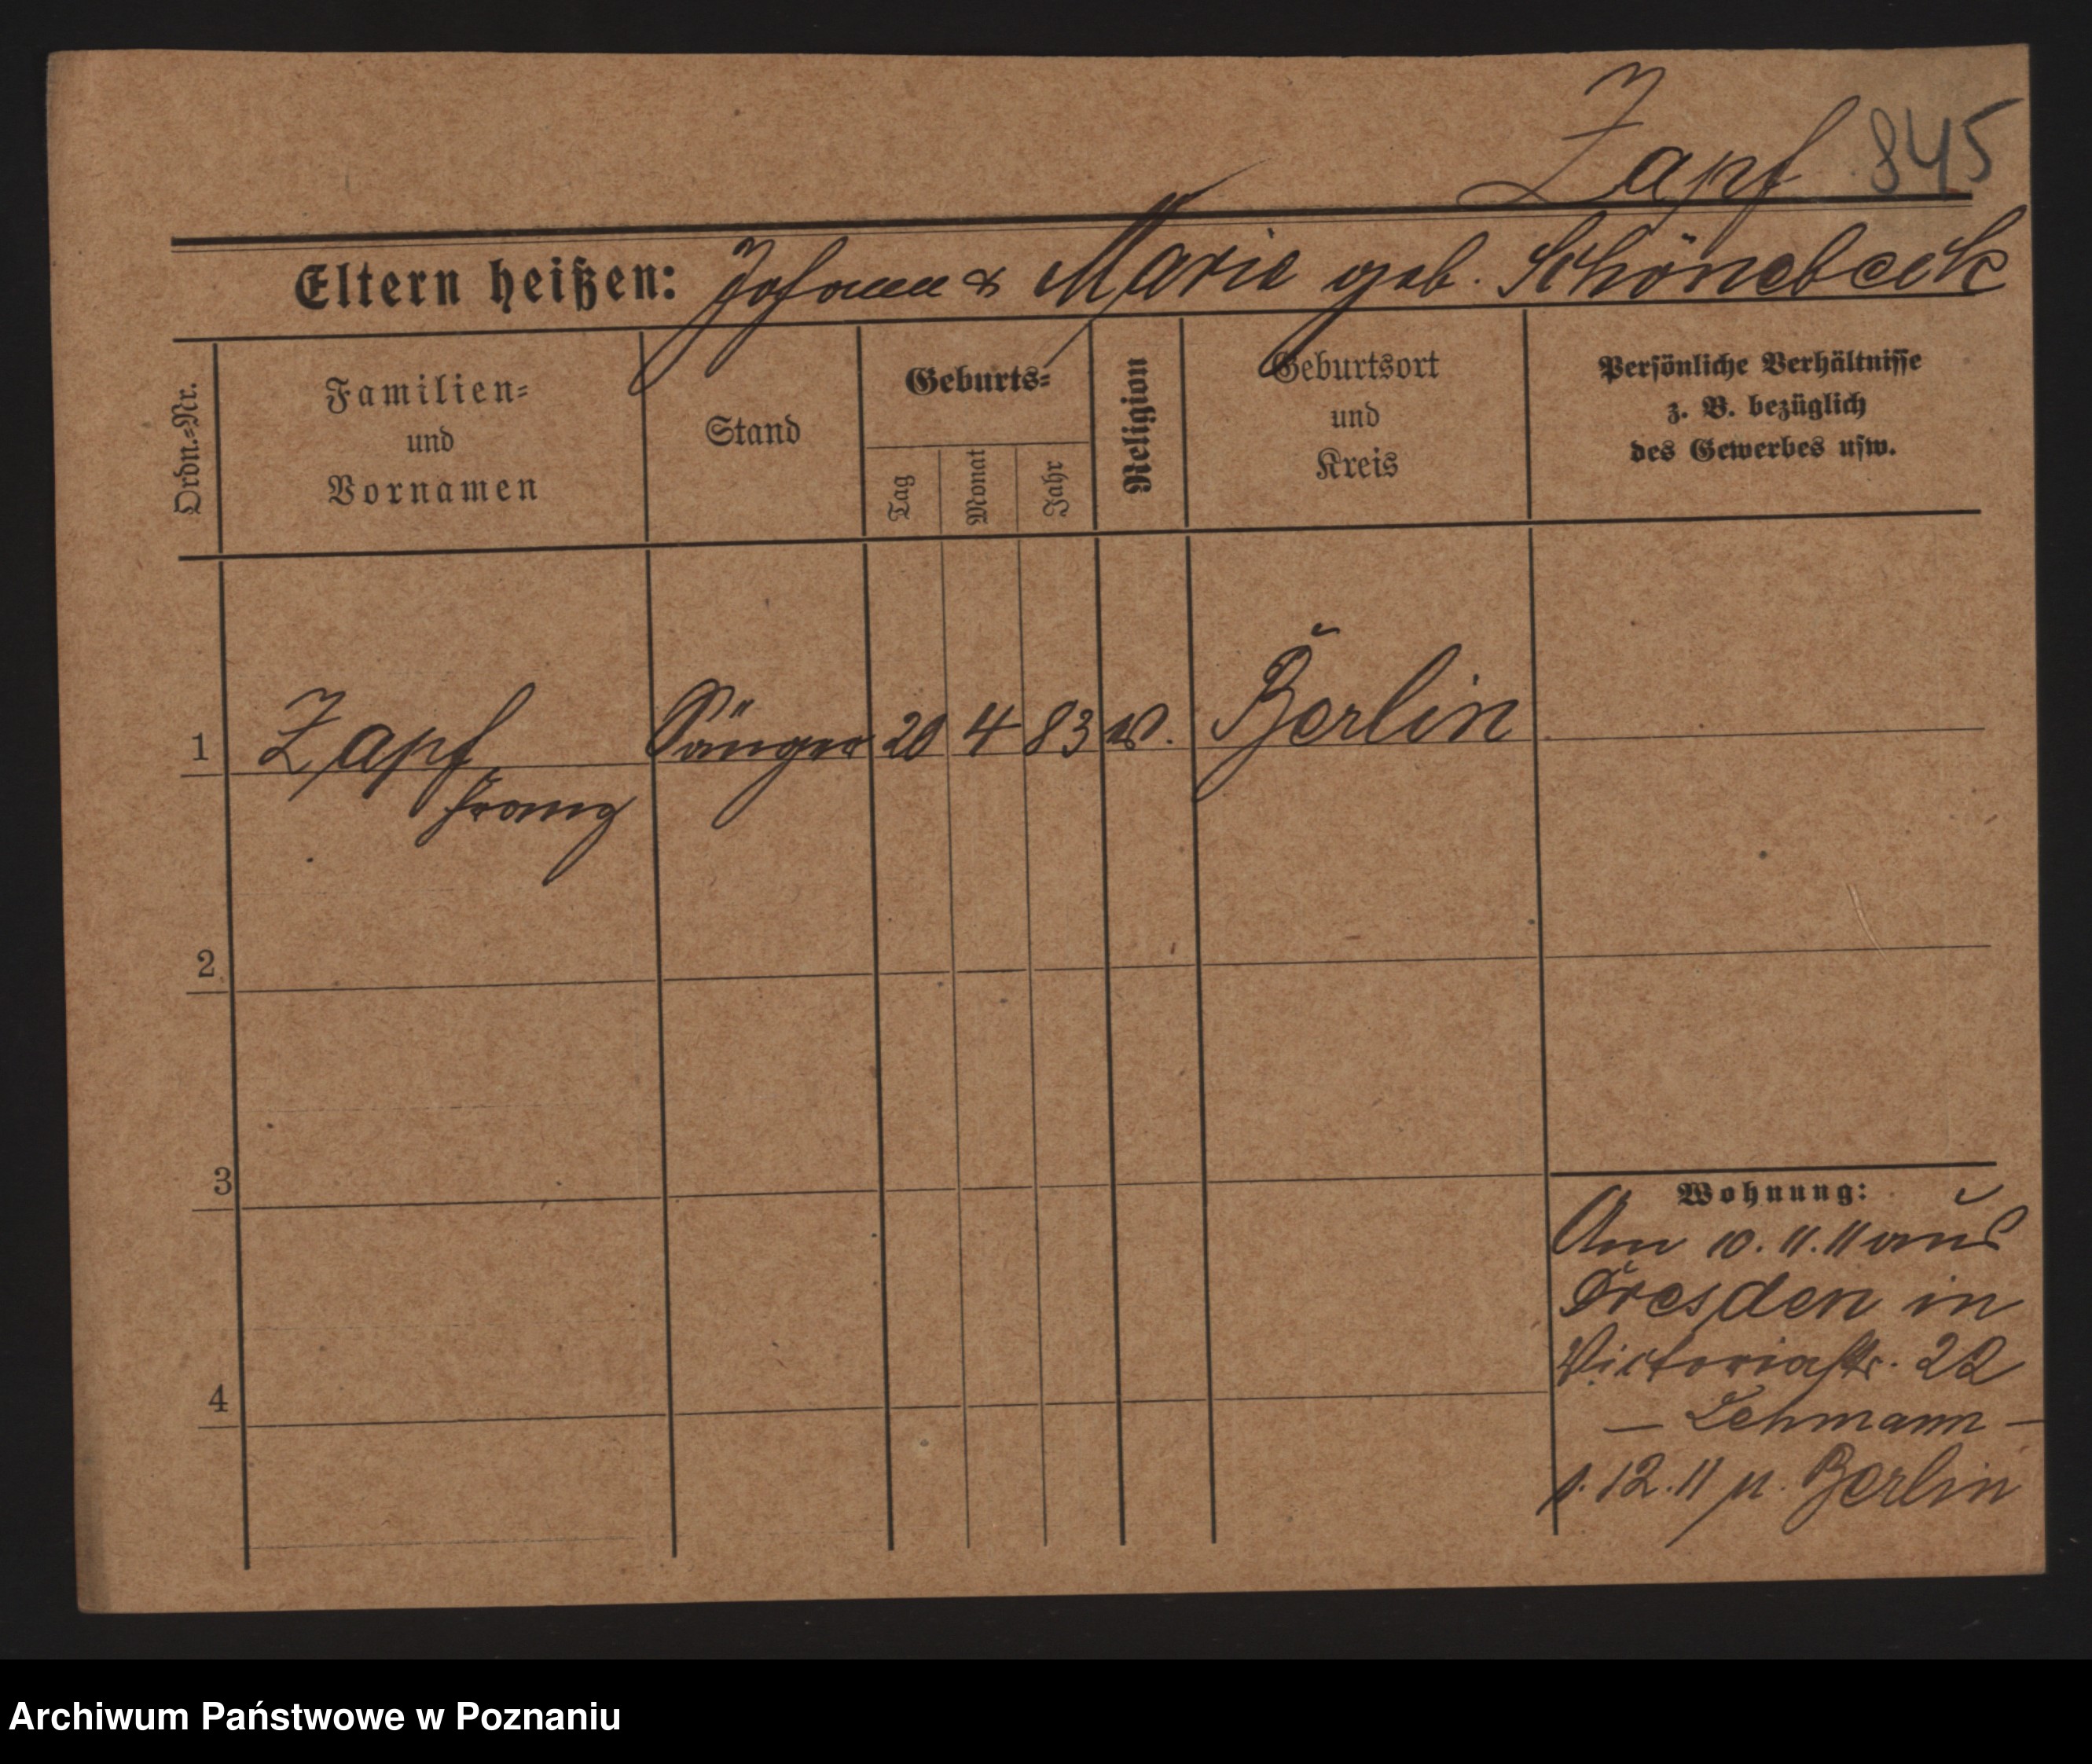 Zapf 845
Eltern heißen: Johann & Marie geb. Schönebeck
Ordn.-Nr.
Familien-
und
Vornamen
Stand
Geburts-
Tag
Monat
Jahr
Religion
Geburtsort
und
Kreis
Persönliche Verhältnisse
z. B. bezüglich
des Gewerbes usw.
1 Zapf Sänger 20 4 83 Berlin
Franz
2
3
4
Wohnung:
Am 10.11.11 aus
Dresden in
Victoriastr. 22
— Lehmann —
1.12.11 n. Berlin
Archiwum Państwowe w Poznaniu